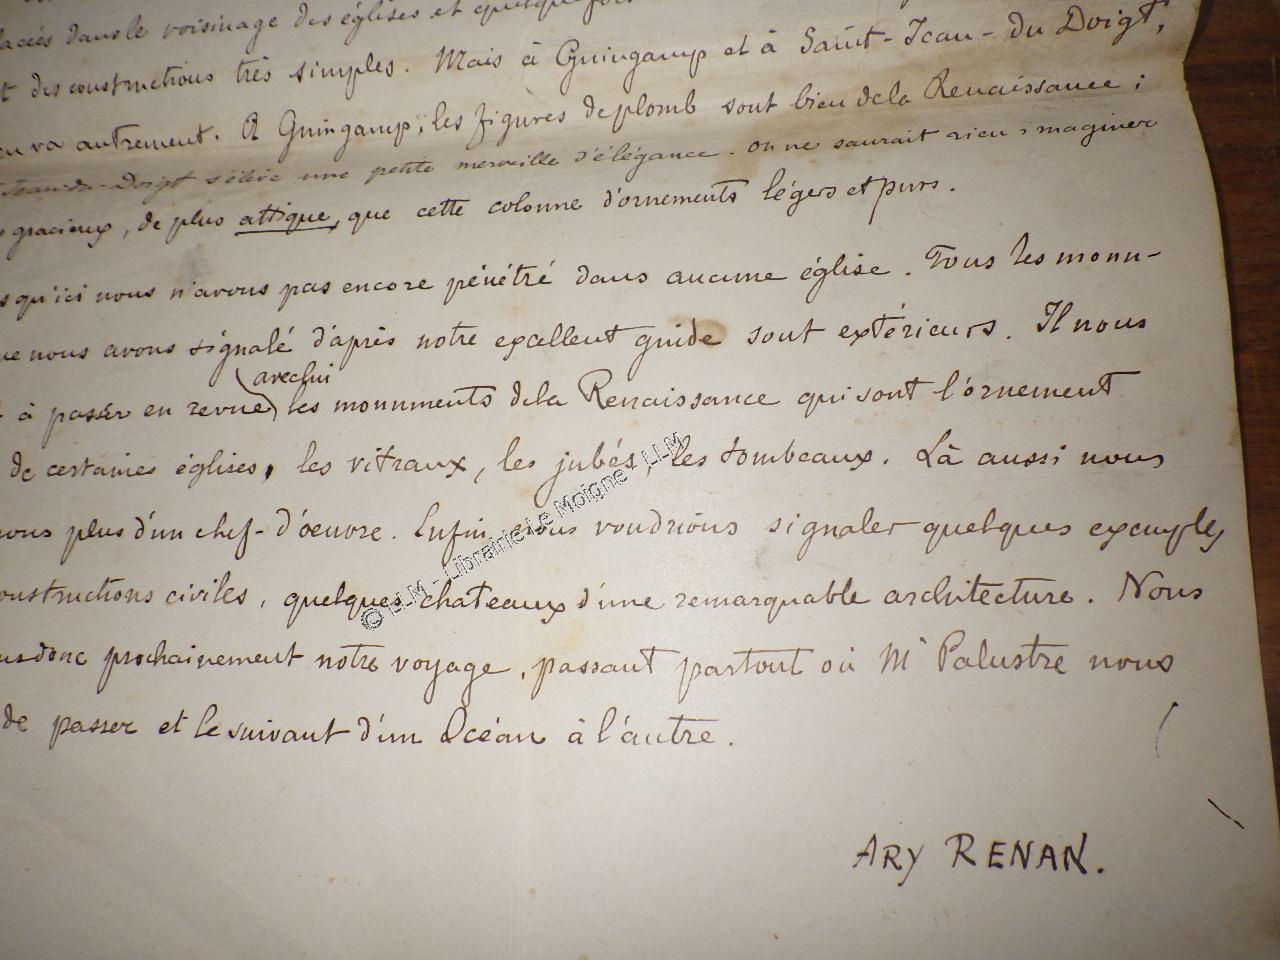 dans le voisinage des églises et quelquefois
des constructions très simples. Mais à Guingamp et à Saint-Jean-du Doigt,
va autrement. A Guingamp, les figures de plomb sont bien de la Renaissance ;
Jean-du-Doigt s'élève une petite merveille d'élégance. On ne saurait rien imaginer
gracieux, de plus attique, que cette colonne d'ornements légers et purs.
qu'ici nous n'avons pas encore pénétré dans aucune église. Tous les monu-
nous avons signalé d'après notre excellent guide sont extérieurs. Il nous
avec lui
à passer en revue les monuments de la Renaissance qui sont l'ornement
de certaines églises, les vitraux, les jubés, les tombeaux. Là aussi nous
plus d'un chef-d'oeuvre. Enfin, nous voudrions signaler quelques exemples
constructions civiles, quelques chateaux d'une remarquable architecture. Nous
donc prochainement notre voyage, passant partout où Mr Palustre nous
de passer et le suivant d'un Océan à l'autre.
ARY RENAN.
© LLM - Librairie Le Moigne - LLM